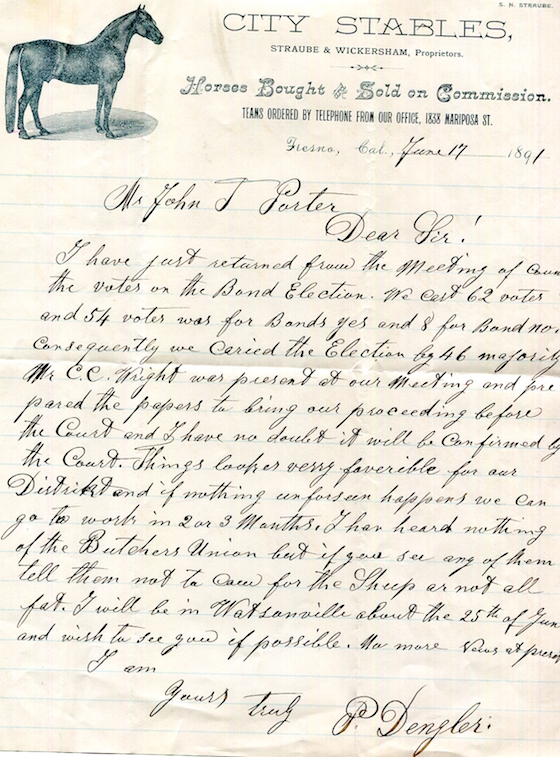 S. N. STRAUBE.
CITY STABLES,
STRAUBE & WICKERSHAM, Proprietors.
Horses Bought & Sold on Commission.
TEAMS ORDERED BY TELEPHONE FROM OUR OFFICE, 1838 MARIPOSA ST.
Fresno, Cal., June 17 1891
Mr John T Porter
Dear Sir!
I have just returned from the Meeting of coun
the votes on the Bond Election. We cast 62 votes
and 54 votes was for Bonds yes and 8 for Bond no.
Consequently we caried the Election by 46 majority
Mr C.C. Wright was present at our Meeting and pre
pared the papers to bring our proceeding before
the Court and I have no doubt it will be confirmed by
the Court. Things lookes verry faverible for our
District and if nothing unforseen happens we can
go to work in 2 or 3 Months. I hav heard nothing
of the Butchers Union but if you see any of them
tell them not to for the Sheep ar not all
fat. I will be in Watsonville about the 25th of Jun
and wish to see you if possible. No more News at presen
I am
Yours truly P. Dengler.